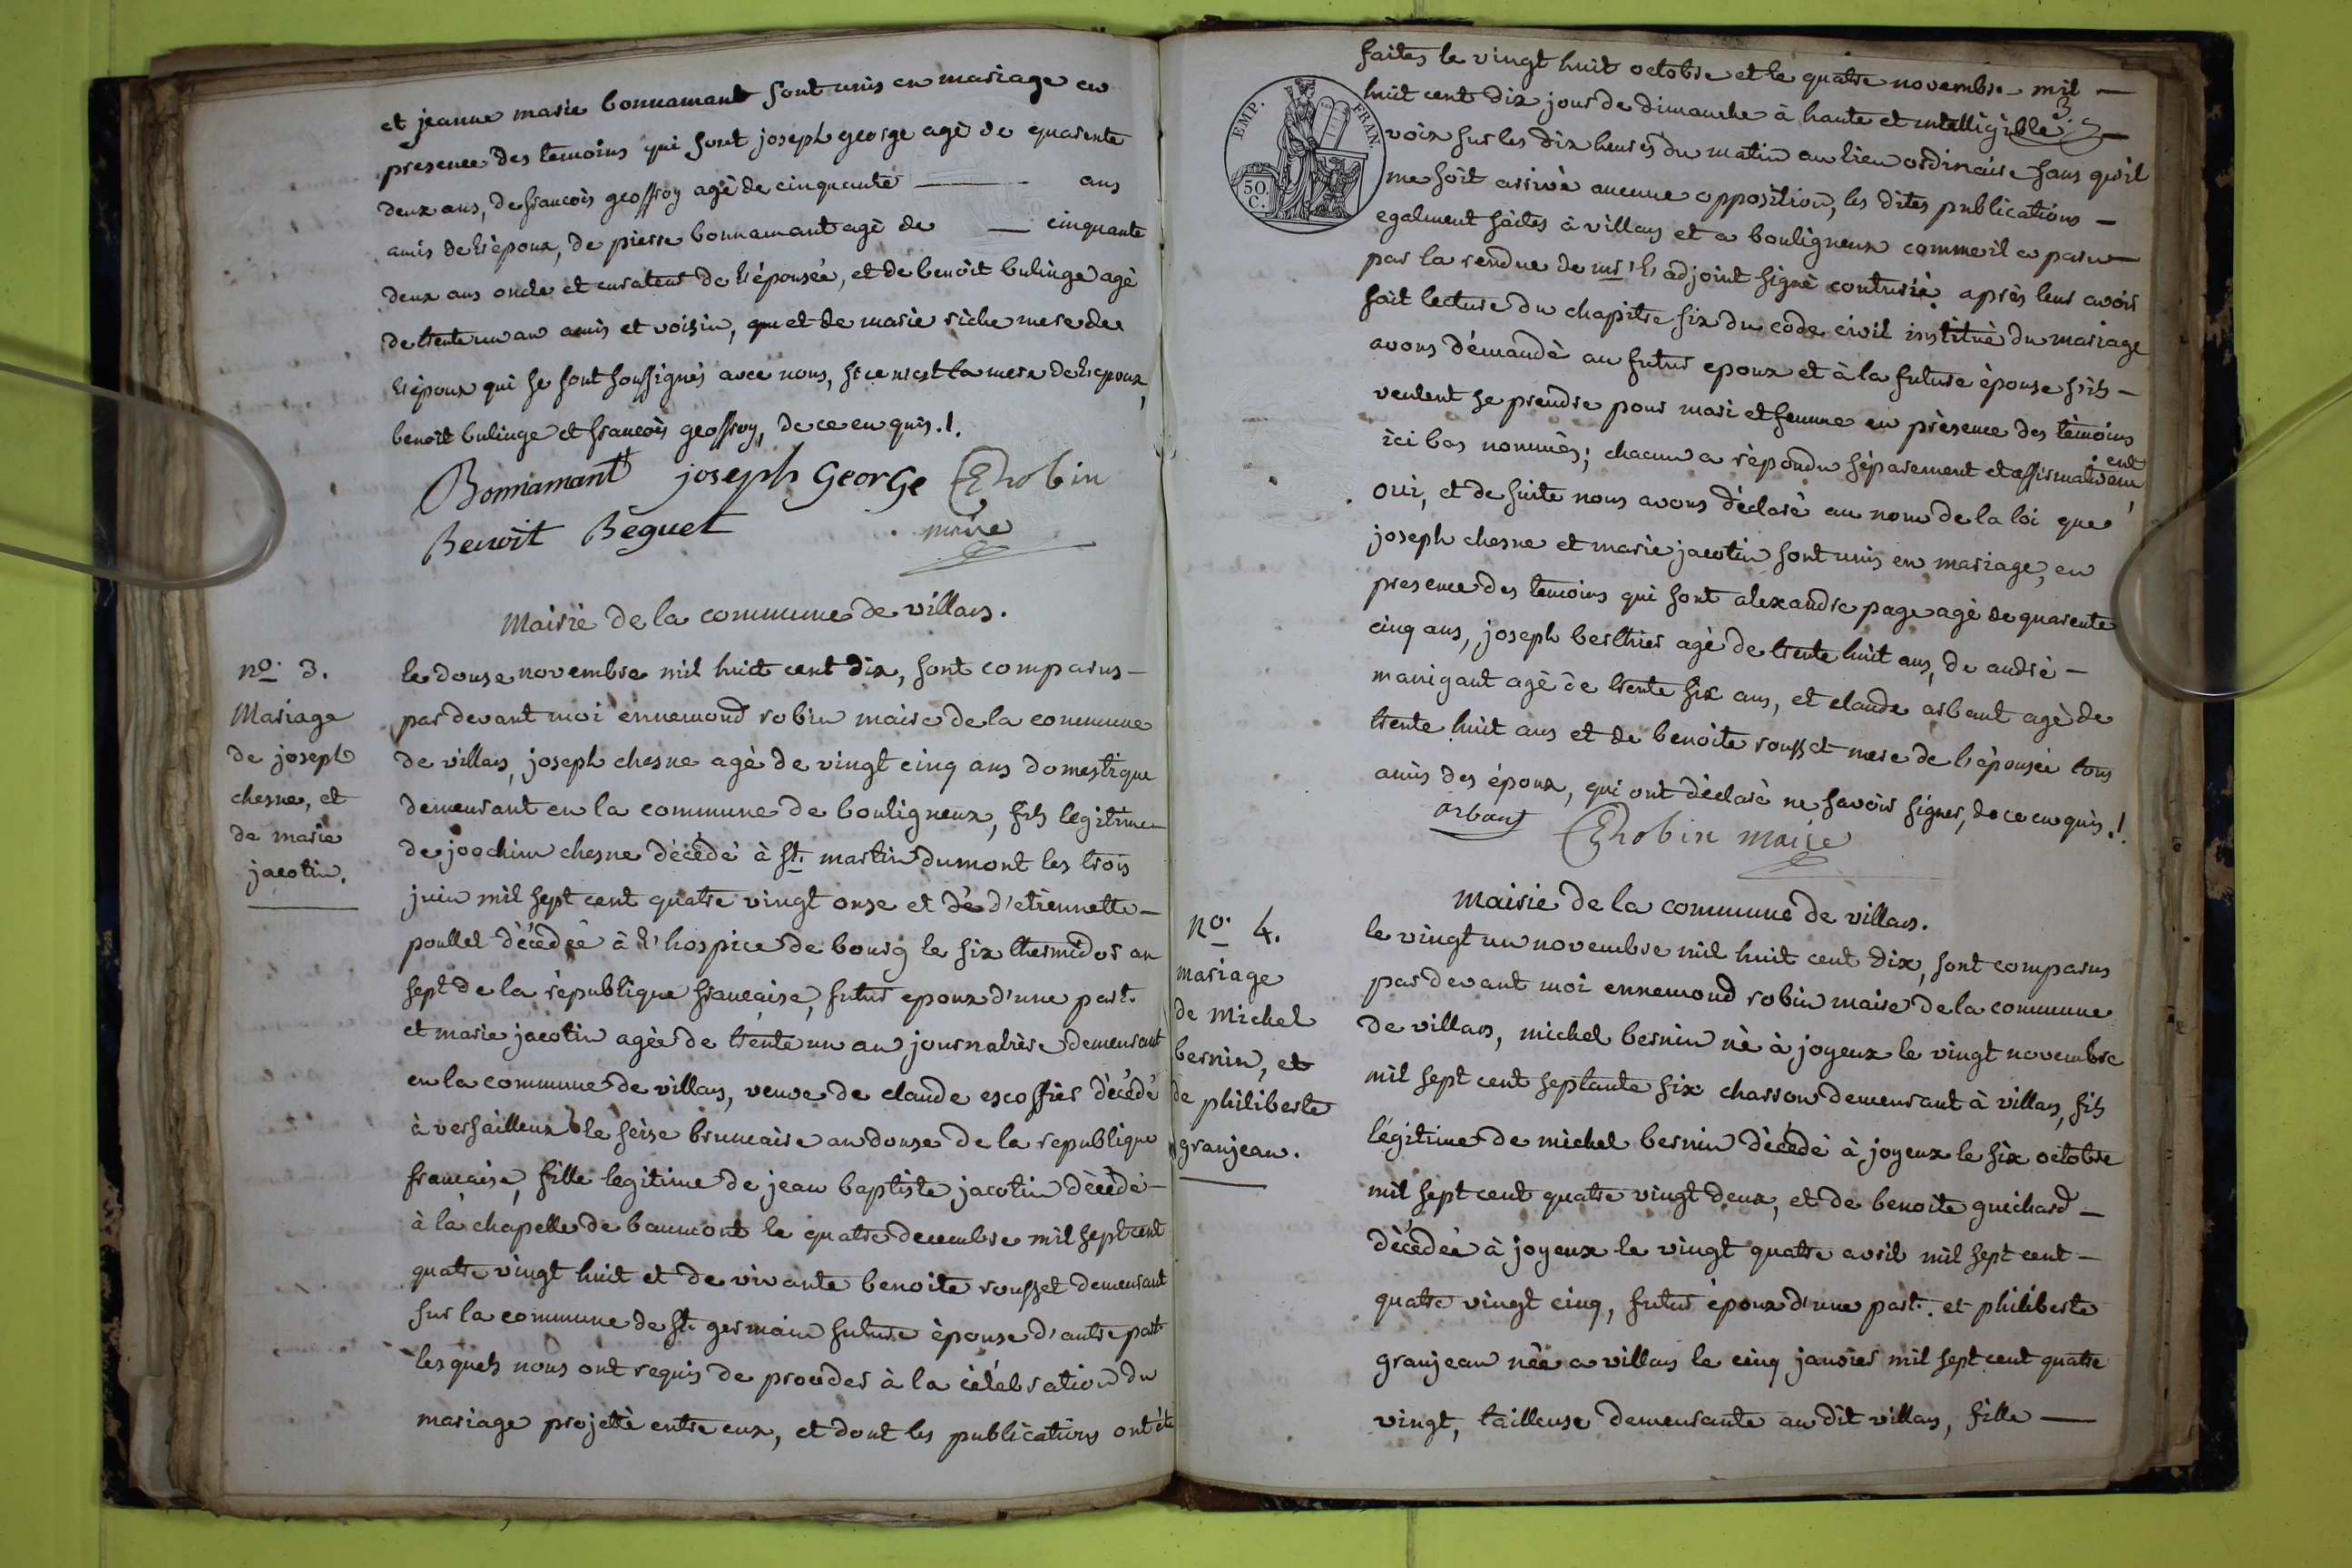 et jeanne marie bonnamant sont unis en mariage en
presence des temoins qui sont joseph george agé de quarente
deux ans, de francois geoffroy agé de cinquante ——— ans
amis de l'époux, de pierre bonnamant agé de — cinquante
deux ans oncle et curateur de l'épousée, et de benoit bulinge agé
de trente un an amis et voisin, que et de marie riche mere de
l'époux qui se sont soussignés avec nous, si ce n'est la mere de l'epoux,
benoit bulinge et francois geoffroy, de ce enquis ./.
Bonnamant joseph George ERobin
Benoit Beguet maire
Mairie de la commune de villars.
no. 3.
Mariage
de joseph
chesne, et
de marie
jacotin.
le douse novembre mil huit cent dix, sont comparus –
par devant moi ennemond robin maire de la commune
de villars, joseph chesne agé de vingt cinq ans domestique
demeurant en la commune de bouligneux, fils legitime
de joachim chesne décédé à st. martin dumont les trois
juin mil sept cent quatre vingt onse et de d'etiennette –
poullet décédée à l'hospice de bourg le six thermidor an
sept de la république française, futur epoux d'une part.
et marie jacotin agée de trente un an journaliere demeurant
en la commune de villars, veuve de claude escoffier décédé
à versailleux le seise brumaire an douse de la republique
francaise, fille legitime de jean baptiste jacotin décédé –
à la chapelle de baumont le quatre decembre mil sept cent
quatre vingt huit et de vivante benoite rousset demeurant
sur la commune de st. germain future épouse d'autre part
lesquels nous ont requis de proceder à la célébration du
mariage projetté entre eux, et dont les publications ont été
faites le vingt huit octobre et le quatre novembre mil —
huit cent dix jour de dimanche à haute et intelligible —
voix sur les dix heures du matin au lieu ordinaire sans qu'il
me soit arrivé aucune opposition, les dites publications –
egalment faites à villars et a bouligneux comme il a paru —
par la rendue de mr. l'adjoint signé conturié. après leur avoir
fait lecture du chapitre six du code civil institué du mariage
avons démandé au futur epoux et à la future épouse s'ils –
veulent se prendre pour mari et femme en présence des témoins
ici bas nommés; chacun a répondu séparement et affirmativem ent
oui, et de suite nous avons déclaré au nom de la loi que
joseph chesne et marie jacotin sont unis en mariage, en
presence des temoins qui sont alexandre page agé de quarente
cinq ans, joseph berthier agé de trente huit ans, de andré –
manigant agé de trente six ans, et claude arbant agé de
trente huit ans et de benoite rousset mere de l'épousée tous
amis des époux, qui ont déclaré ne savoir signer, de ce enquis ./.
arbant ERobin maire
EMP. FRAN.
50.
C.
Mairie de la commune de villars.
no. 4.
mariage
de Michel
bernin, et
de philiberte
granjean.
le vingt un novembre mil huit cent dix, sont comparus
par devant moi ennemond robin maire de la commune
de villars, michel bernin né à joyeux le vingt novembre
mil sept cent septante six charron demeurant à villars, fils
légitime de michel bernin décédé à joyeux le six octobre
mil sept cent quatre vingt deux, et de benoite guichard –
décédée à joyeux le vingt quatre avril mil sept cent –
quatre vingt cinq, futur époux d'une part. et philiberte
granjean née a villars le cinq janvier mil sept cent quatre
vingt, tailleuse demeurante au dit villars, fille —